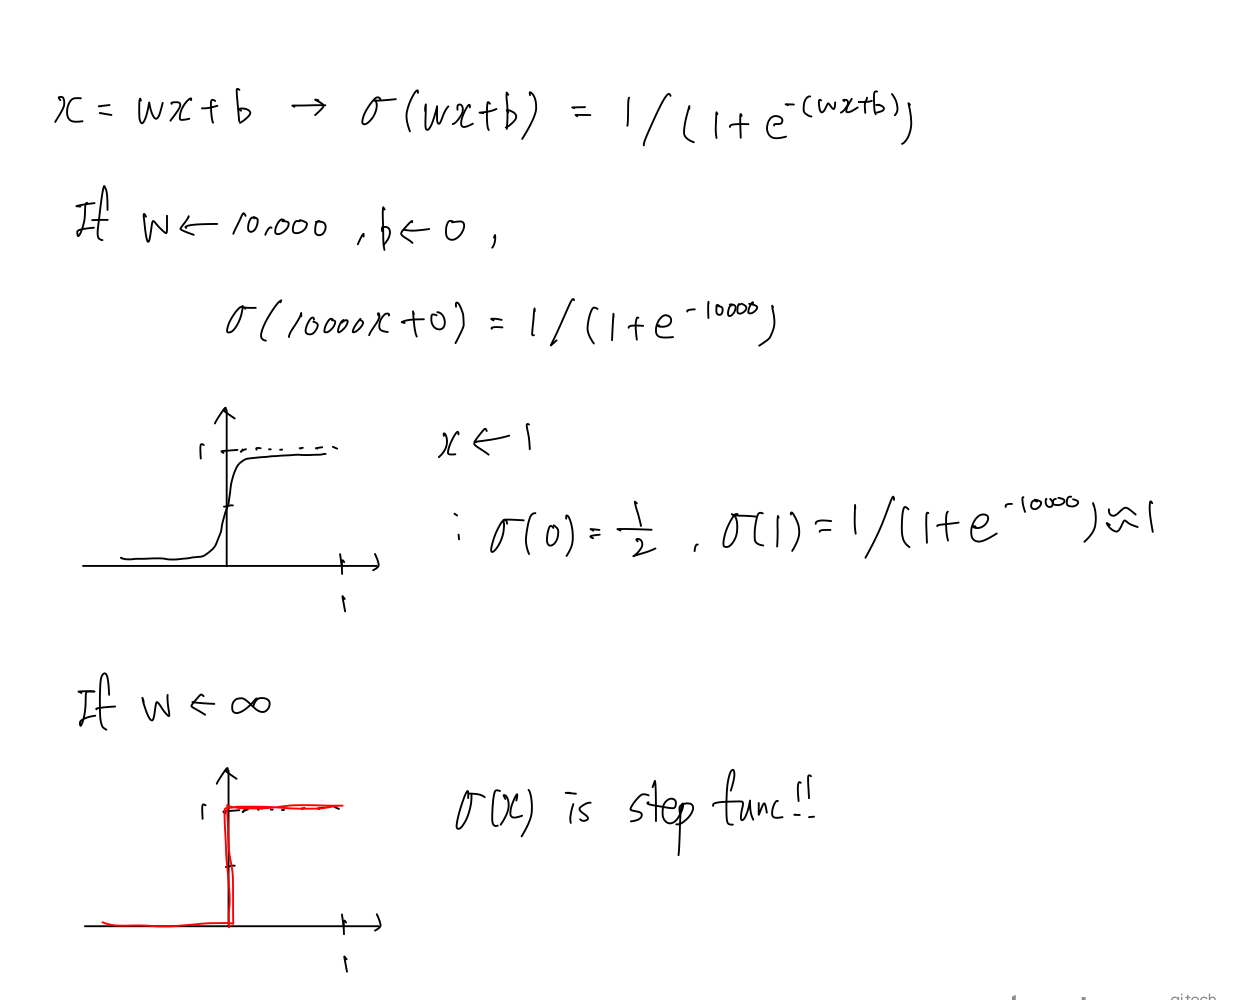 x = wx+b → σ(wx+b) = 1/(1+e^-(wx+b))
If w←10,000, b←0,
σ(10000x+0) = 1/(1+e^-10000)
1
x←1
∶ σ(0)=1/2, σ(1)=1/(1+e^-10000)≈1
1
If w←∞
1
σ(x) is step func!!
1